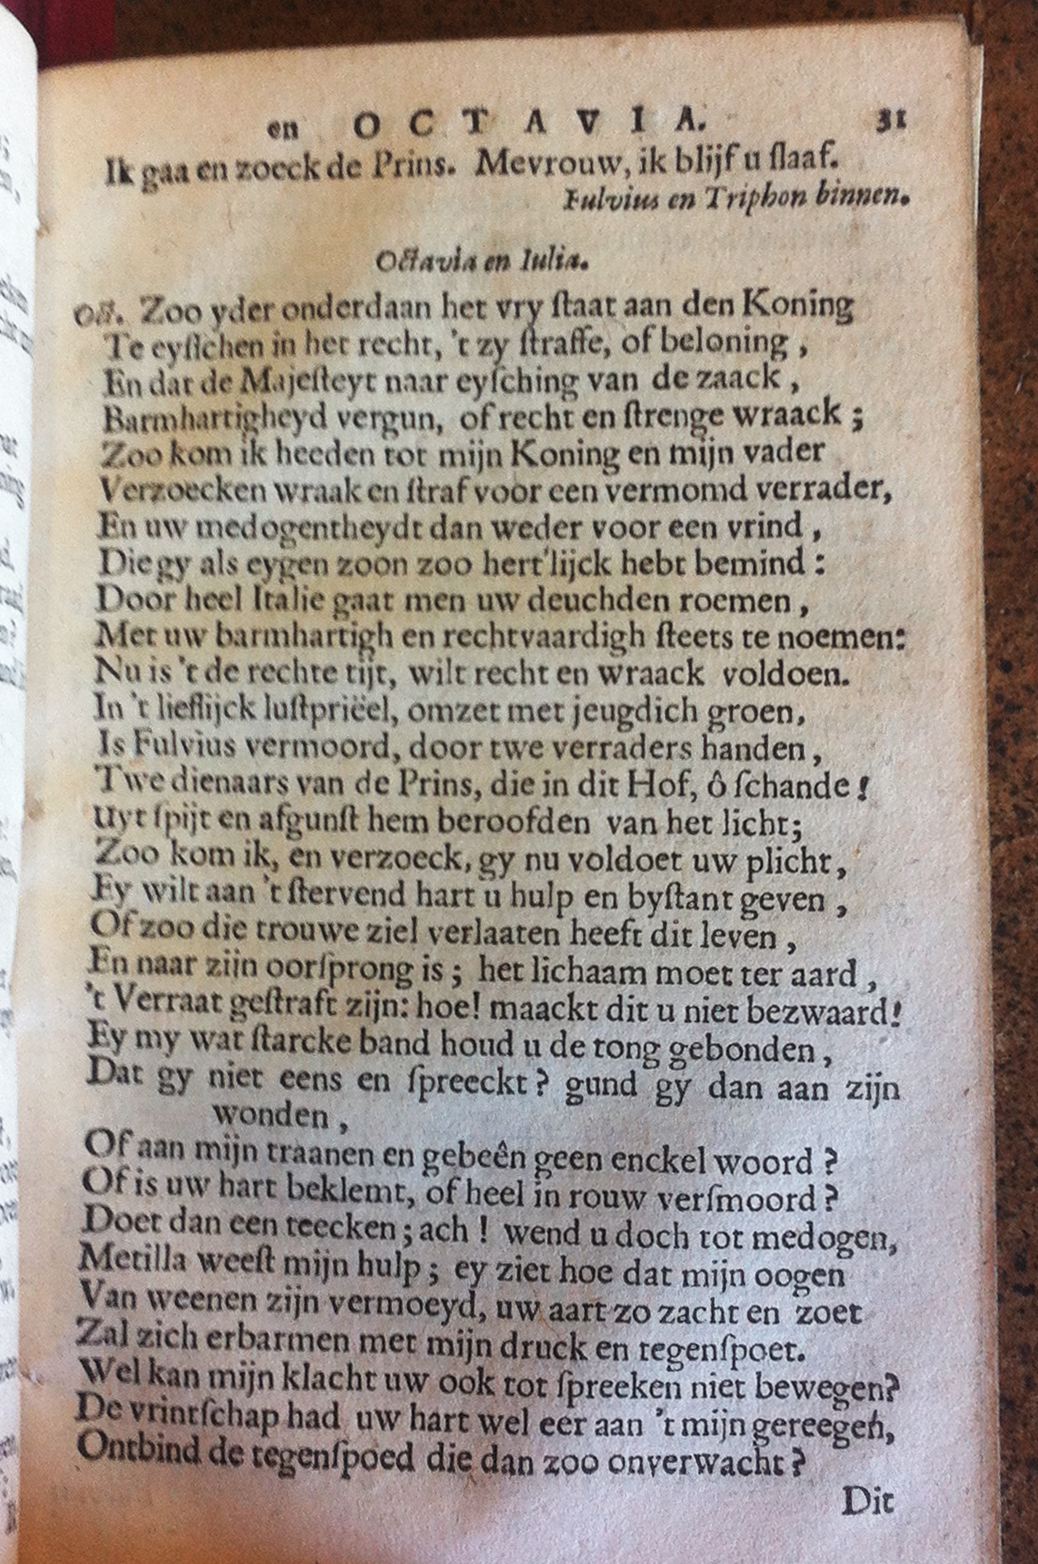 en OCTAVIA. 31
Ik gaa en zoeck de Prins. Mevrouw, ik blijf u slaaf.
Fulvius en Triphon binnen.
Octavia en Iulia.
Oct. Zoo yder onderdaan het vry ſtaat aan den Koning
Te eyſſchen in het recht, 't zy ſtraffe, of beloning,
En dat de Majeſteyt naar eyſching van de zaack,
Barmhartigheyd vergun, of recht en ſtrenge wraack;
Zoo kom ik heeden tot mijn Koning en mijn vader
Verzoecken wraak en ſtraf voor een vermomd verrader,
En uw medogentheydt dan weder voor een vrind,
Die gy als eygen zoon zoo hert'lijck hebt bemind:
Door heel Italie gaat men uw deuchden roemen,
Met uw barmhartigh en rechtvaardigh ſteets te noemen:
Nu is 't de rechte tijt, wilt recht en wraack voldoen.
In 't lieflijck luſtpriëel, omzet met jeugdich groen,
Is Fulvius vermoord, door twe verraders handen,
Twe dienaars van de Prins, die in dit Hof, ô ſchande!
Uyt ſpijt en afgunſt hem beroofden van het licht;
Zoo kom ik, en verzoeck, gy nu voldoet uw plicht,
Ey wilt aan 't ſtervend hart u hulp en byſtant geven,
Of zoo die trouwe ziel verlaaten heeft dit leven,
En naar zijn oorſprong is; het lichaam moet ter aard,
't Verraat geſtraft zijn: hoe! maackt dit u niet bezwaard!
Ey my wat ſtarcke band houd u de tong gebonden,
Dat gy niet eens en ſpreeckt? gund gy dan aan zijn
wonden,
Of aan mijn traanen en gebeên geen enckel woord?
Of is uw hart beklemt, of heel in rouw verſmoord?
Doet dan een teecken; ach! wend u doch tot medogen,
Metilla weeſt mijn hulp; ey ziet hoe dat mijn oogen
Van weenen zijn vermoeyd, uw aart zo zacht en zoet
Zal zich erbarmen met mijn druck en tegenſpoet.
Wel kan mijn klacht uw ook tot ſpreeken niet bewegen?
De vrintſchap had uw hart wel eer aan 't mijn gereegen,
Ontbind de tegenſpoed die dan zoo onverwacht?
Dit